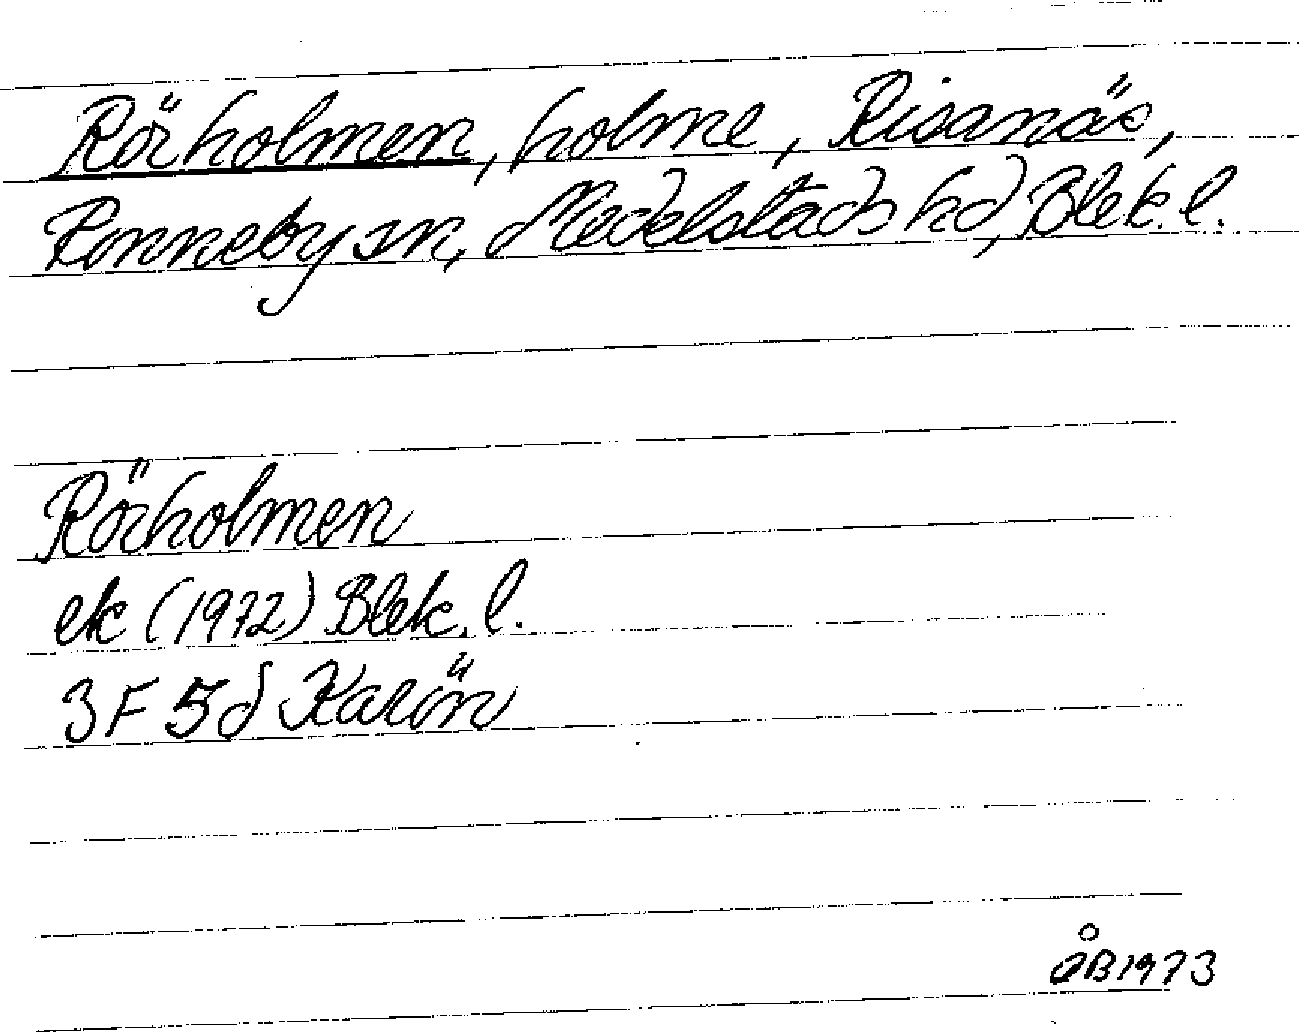 Rörholmen, holme, Risanäs,
Ronneby sn, Medelstads hd, Blek. l.
Rörholmen
ek (1972) Blek. l.
3F 5d Karön
åB 1973